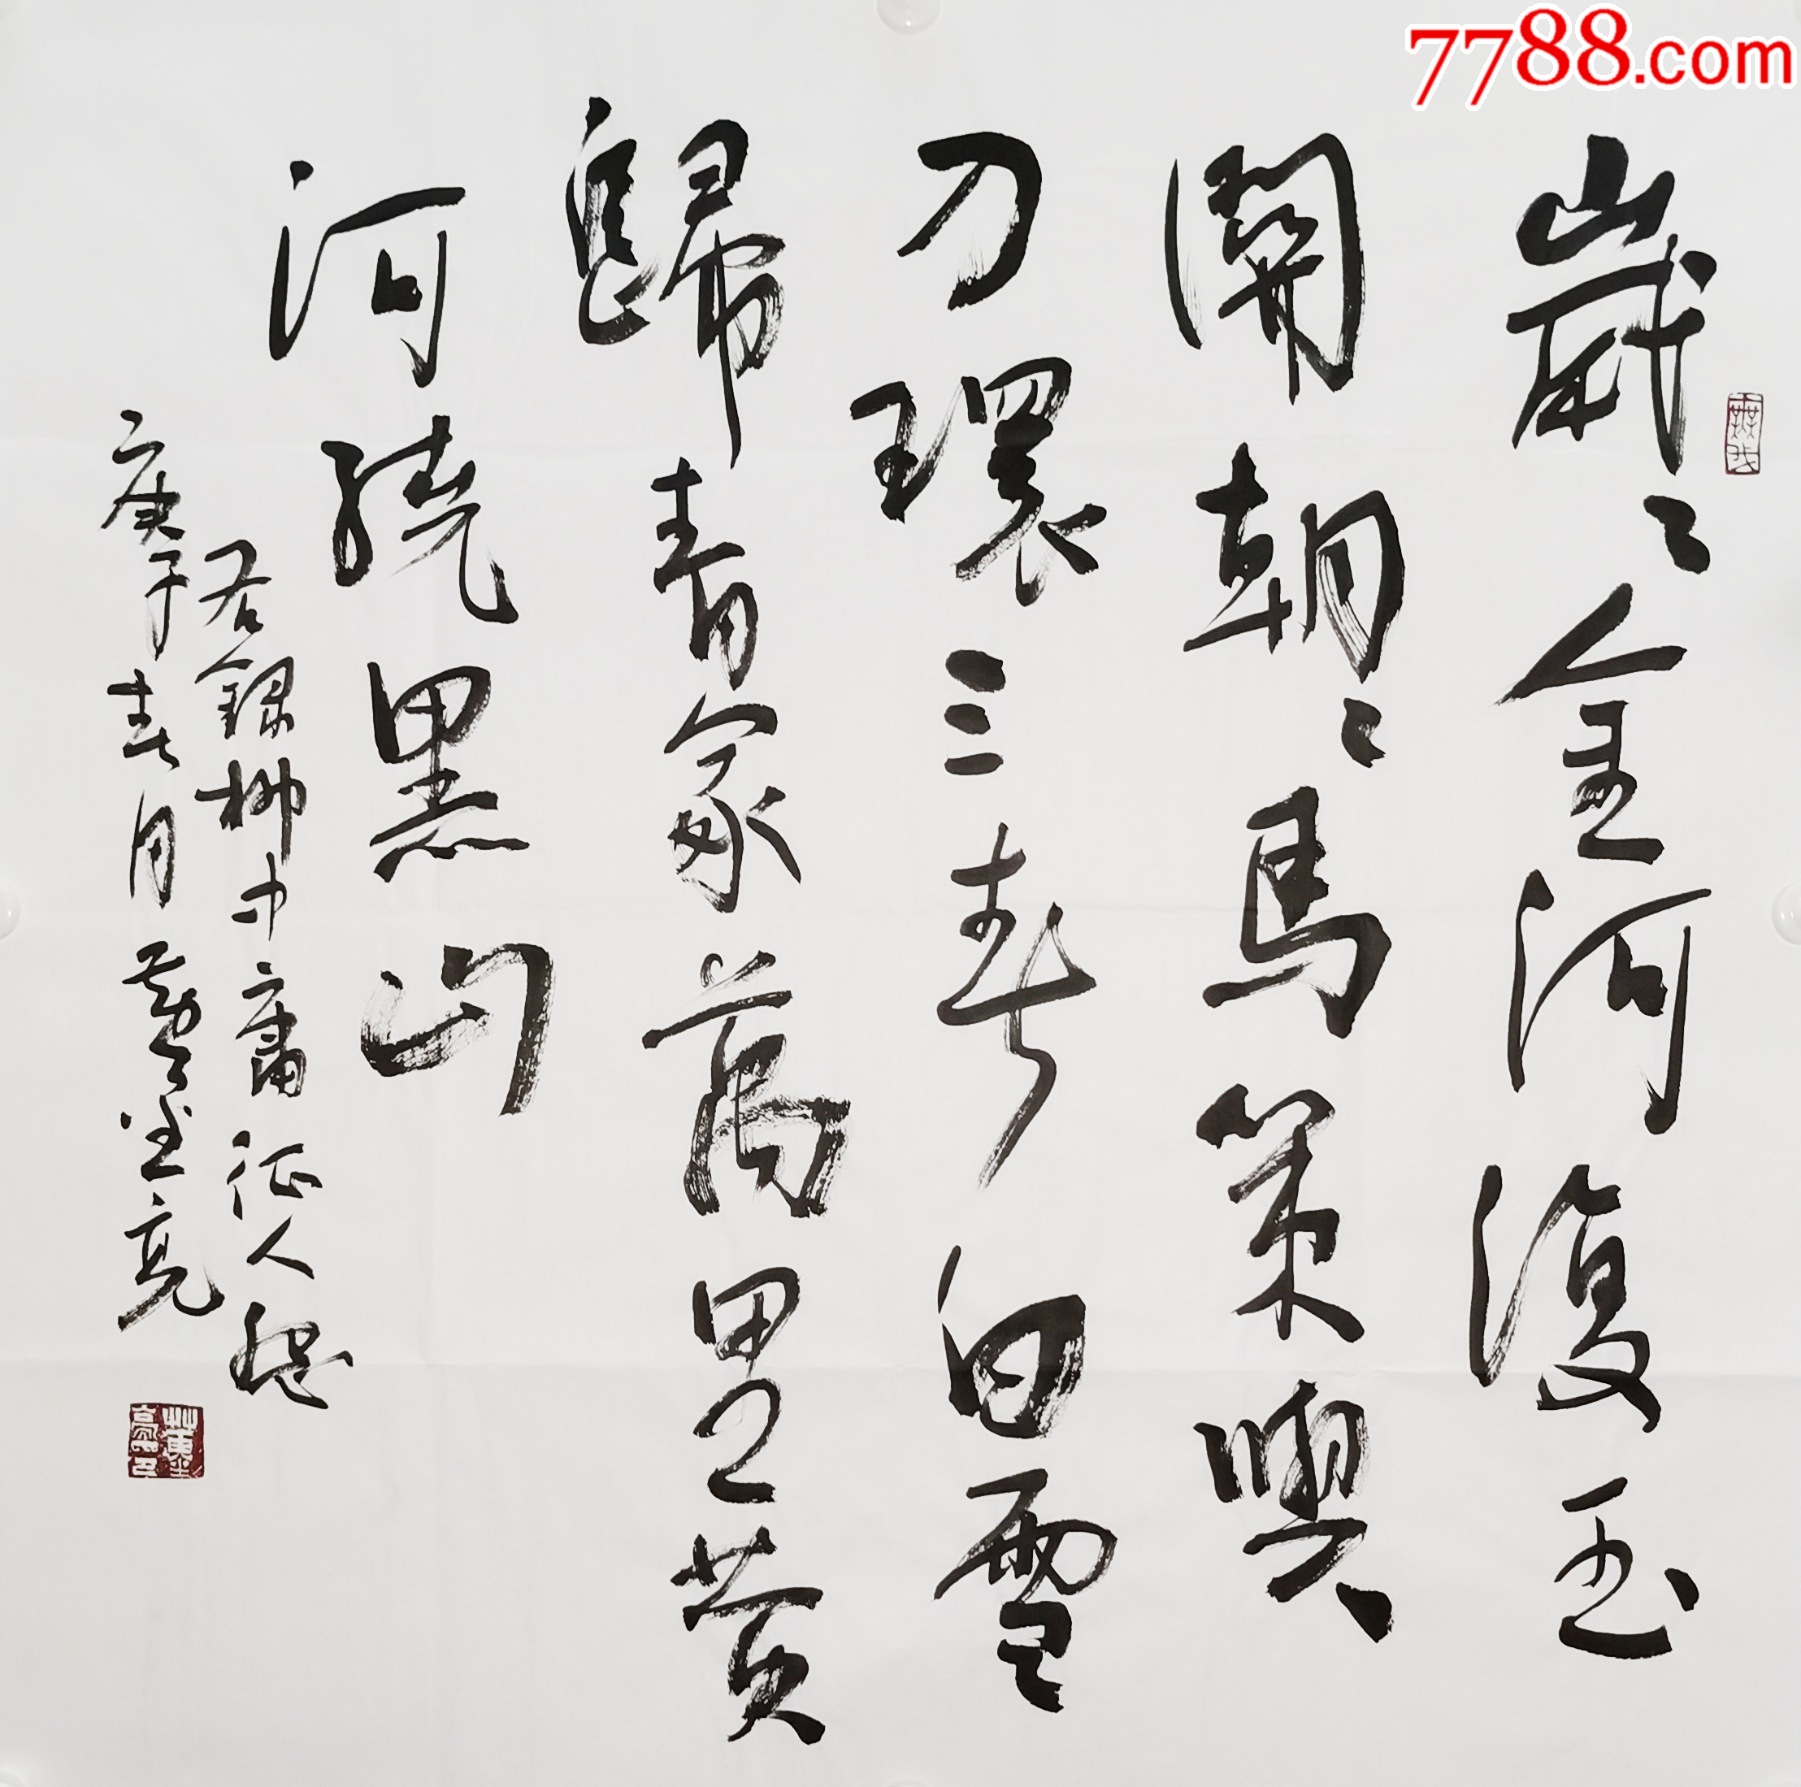 7788.com
歲々金河復玉
關朝々馬策與
刀環三春白雪
歸青冢萬里黃
河繞黑山
右錄柳中庸征人怨
庚子春月董亮